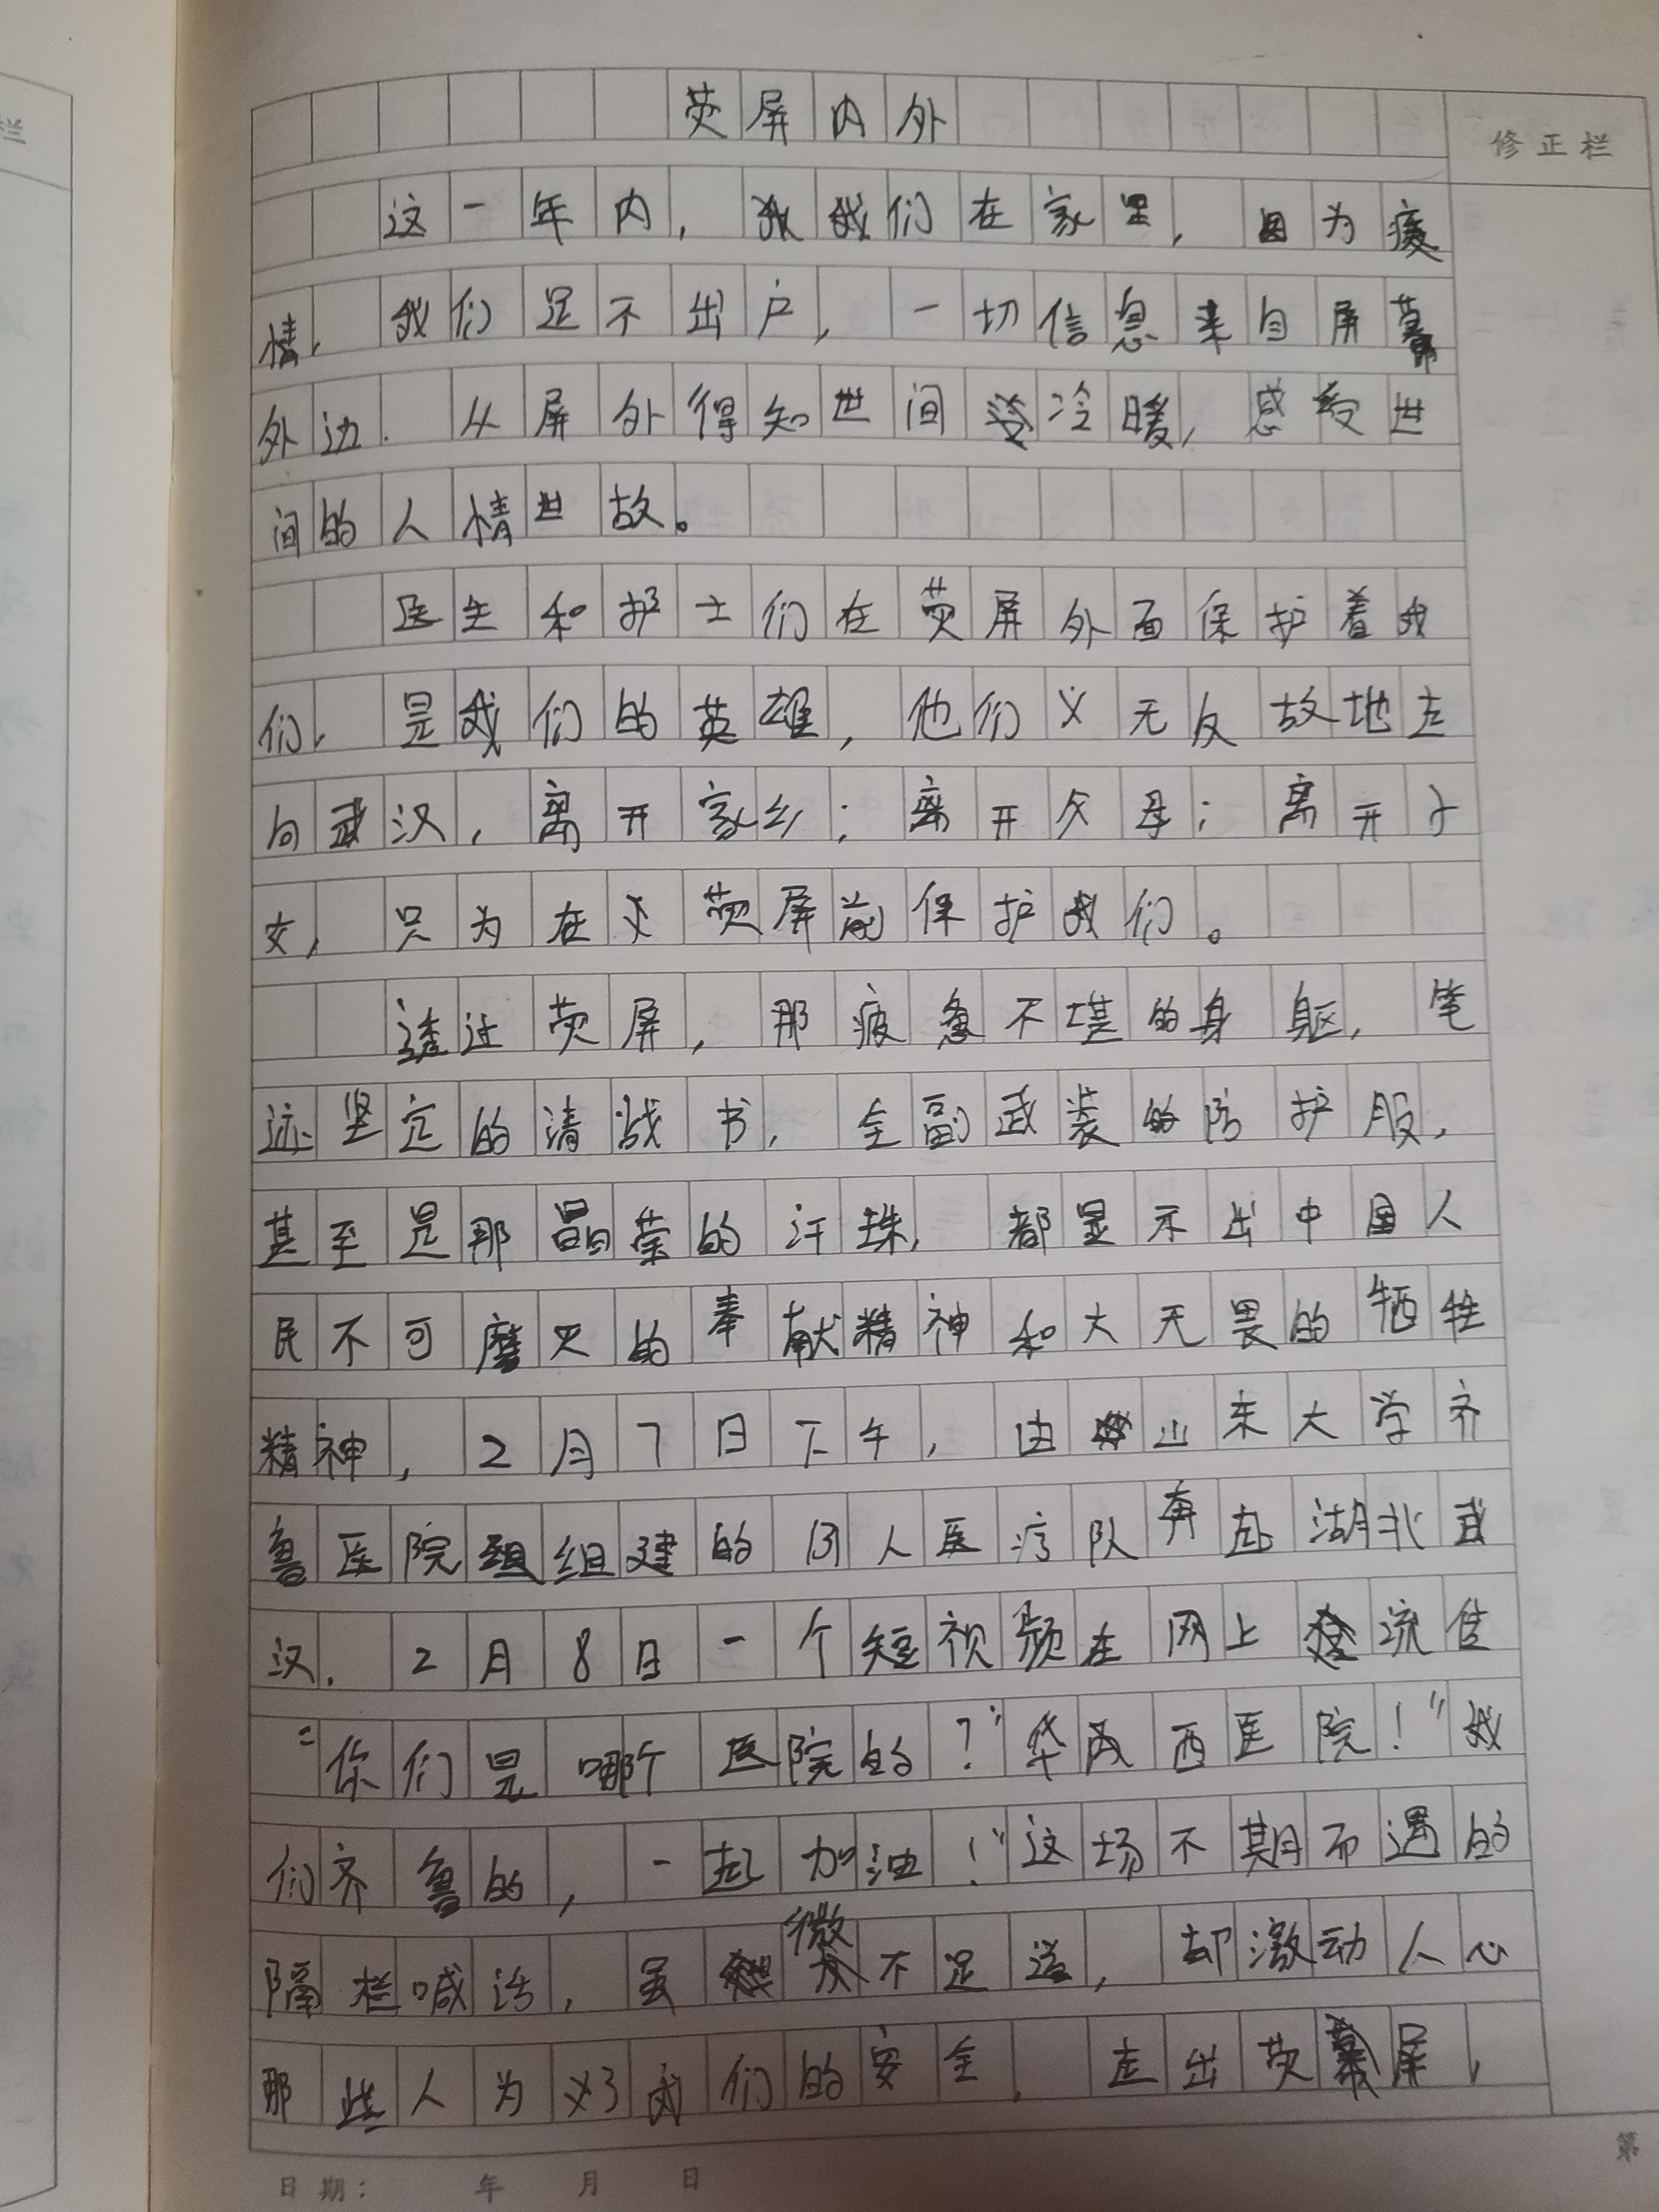 荧屏内外
修正栏
栏
这一年内，我们在家里，因为疫
情，我们足不出户，一切信息来自屏幕
外边．从屏外得知世间冷暖，感受世
间的人情世故。
医生和护士们在荧屏外面保护着我
们，是我们的英雄，他们义无反故地走
向武汉，离开家乡；离开父母；离开子
女，只为在荧屏前保护我们。
透过荧屏，那疲惫不堪的身躯，笔
迹坚定的请战书，全副武装的防护服，
甚至是那晶莹的汗珠，都显示出中国人
民不可磨灭的奉献精神和大无畏的牺牲
精神，2月7日下午，由山东大学齐
鲁医院组建的131人医疗队奔赴湖北武
汉．2月8日一个短视频在网上流传
“你们是哪个医院的？”华西医院！”我
们齐鲁的，一起加油！”这场不期而遇的
隔栏喊话，虽微不足道，却激动人心
那些人为了我们的安全，走出荧屏，
日期： 年 月 日
第